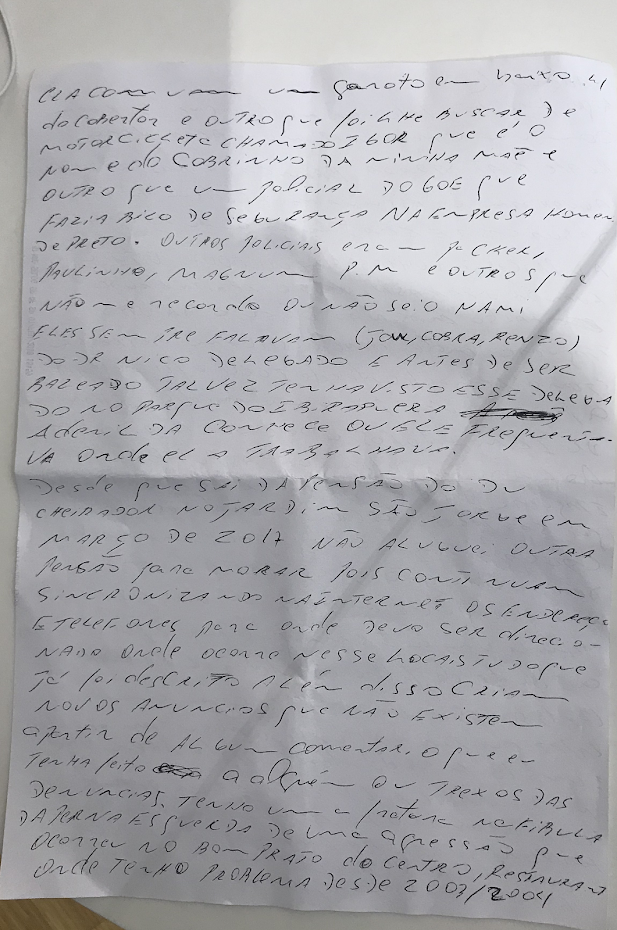 ELA COM um garoto em baixo
do cobertor e OUTRO que foi lhe BUSCAR DE
MOTOCICLETA CHAMADO IGOR que é O
NOME do SOBRINHO DA MINHA MÃE e
OUTRO que um policial DO GOE que
FAZIA BICO DE SEGURANÇA NA EMPRESA Homem
DE PRETO. OUTROS POLICIAIS eram
PAULINHO, MAGNUM P.M e OUTROS que
NÃO me recordo OU NÃO SEI O NAMI
ELES SEMPRE FALAVAM (JOW, COBRA, RENZO)
DO DR NICO DELEGADO E ANTES DE SER
BALEADO TALVEZ TENHA VISTO ESSE DELEGA
DO NO PARQUE DO IBIRAPUERA
A CONHECE OU ELE FREQUENTA-
VA ONDE ELA TRABALHAVA.
Desde que SAI DA PENSÃO DO DU
CHEIRADOR NO JARDIM SÃO JORGE em
MARÇO DE 2017 NÃO ALUGUEI OUTRA
PENSÃO para MORAR pois CONTINUAM
SINCRONIZANDO NA INTERNET OS ENDEREÇO
E TELEFONES para onde DEVO SER direcio-
NADO onde ocorre NESSE LOCAIS TUDO que
já foi descrito ALÉM disso CRIAM
NOVOS ANUNCIOS que NÃO EXISTEM
apartir de ALGUM comentario que eu
TENHA feito a alguém OU TREXOS DAS
DENUNCIAS. TENHO uma fratura na FIBULA
DA PERNA ESQUERDA De uma agressão que
OCORREU NO BOM PRATO do CENTRO, RESTAURANT
ONDE TENHO PROBLEMA DESDE 2003/2004